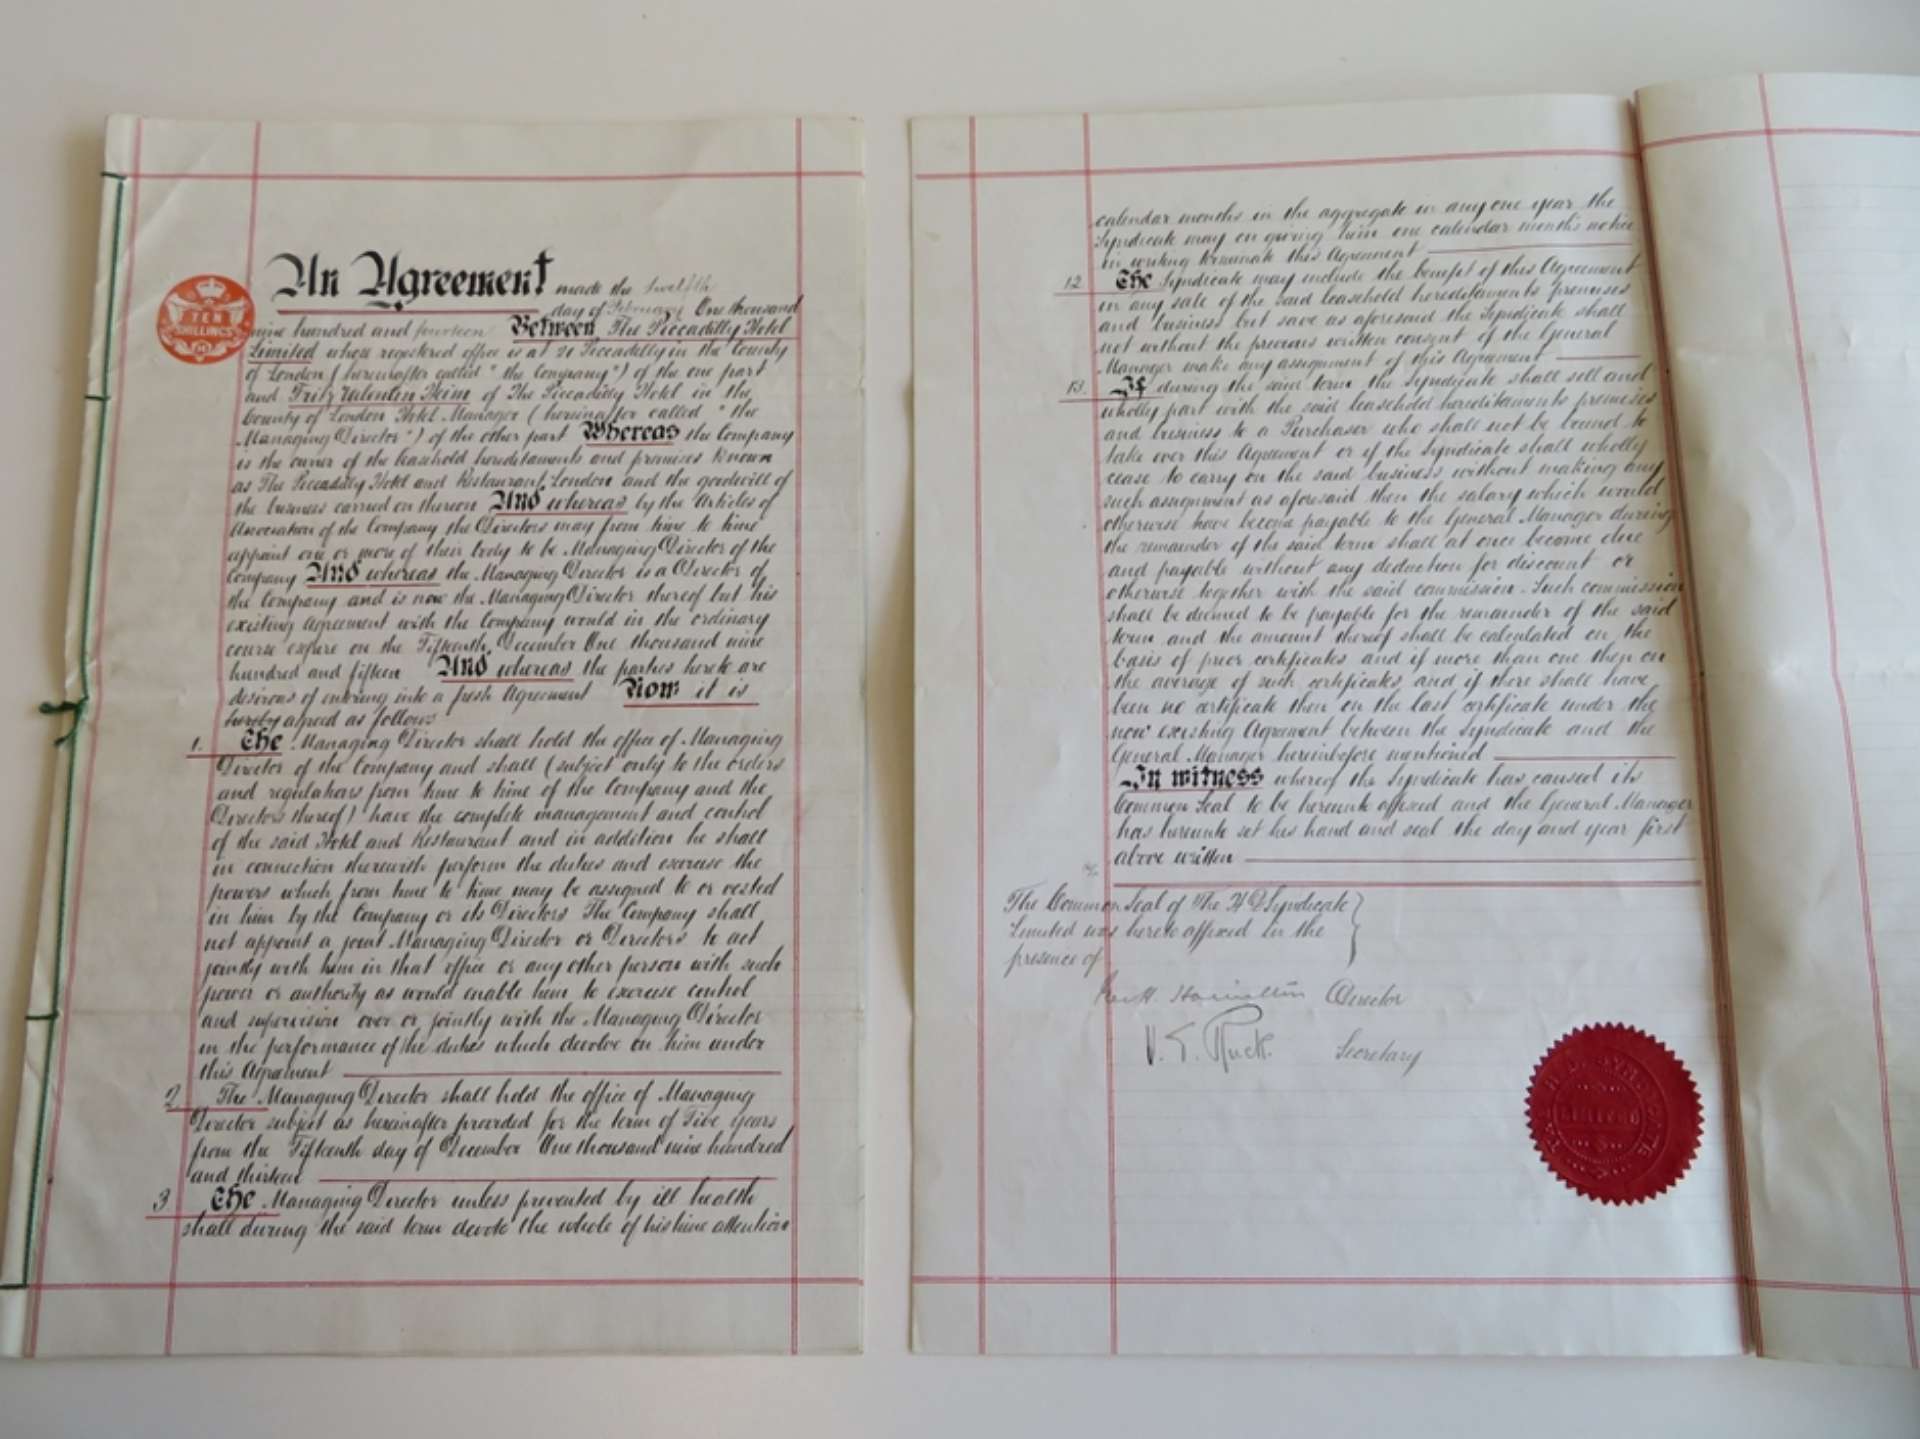 An Agreement made the twelfth
day of February One thousand
nine hundred and fourteen Between The Piccadilly Hotel
Limited whose registered office is at 21 Piccadilly in the County
of London (hereinafter called "the Company") of the one part
and Fritz Valentin Heim of The Piccadilly Hotel in the
County of London Hotel Manager (hereinafter called "the
Managing Director") of the other part Whereas the Company
is the owner of the leasehold hereditaments and premises known
as The Piccadilly Hotel and Restaurant London and the goodwill of
the business carried on thereon And whereas by the Articles of
Association of the Company the Directors may from time to time
appoint one or more of their body to be Managing Director of the
Company And whereas the Managing Director is a Director of
the Company and is now the Managing Director thereof but his
existing Agreement with the Company would in the ordinary
course expire on the Fifteenth December One thousand nine
hundred and fifteen And whereas the parties hereto are
desirous of entering into a fresh Agreement Now it is
hereby agreed as follows
1. The Managing Director shall hold the office of Managing
Director of the Company and shall (subject only to the orders
and regulations from time to time of the Company and the
Directors thereof) have the complete management and control
of the said Hotel and Restaurant and in addition he shall
in connection therewith perform the duties and exercise the
powers which from time to time may be assigned to or vested
in him by the Company or its Directors The Company shall
not appoint a joint Managing Director or Directors to act
jointly with him in that office or any other person with such
power or authority as would enable him to exercise control
and supervision over or jointly with the Managing Director
in the performance of the duties which devolve on him under
this Agreement
2. The Managing Director shall hold the office of Managing
Director subject as hereinafter provided for the term of Five years
from the Fifteenth day of December One thousand nine hundred
and thirteen
3. The Managing Director unless prevented by ill health
shall during the said term devote the whole of his time attention
TEN
SHILLINGS
calendar months in the aggregate in any one year the
Syndicate may on giving him one calendar months notice
in writing terminate this Agreement
12. The Syndicate may include the benefit of this Agreement
in any sale of the said leasehold hereditaments premises
and business but save as aforesaid the Syndicate shall
not without the previous written consent of the General
Manager make any assignment of this Agreement
13. If during the said term the Syndicate shall sell and
wholly part with the said leasehold hereditaments premises
and business to a Purchaser who shall not be bound to
take over this Agreement or if the Syndicate shall wholly
cease to carry on the said business without making any
such assignment as aforesaid then the salary which would
otherwise have become payable to the General Manager during
the remainder of the said term shall at once become due
and payable without any deduction for discount or
otherwise together with the said commission. Such commission
shall be deemed to be payable for the remainder of the said
term and the amount thereof shall be calculated on the
basis of prior certificates and if more than one then on
the average of such certificates and if there shall have
been no certificate then on the last certificate under the
now existing Agreement between the Syndicate and the
General Manager hereinbefore mentioned
In witness whereof the Syndicate has caused its
Common Seal to be hereunto affixed and the General Manager
has hereunto set his hand and seal the day and year first
above written
The Common Seal of The H D Syndicate
Limited was hereto affixed in the
presence of
Hamilton Director
V. E. Ruck. Secretary
THE H. D. SYNDICATE
LIMITED